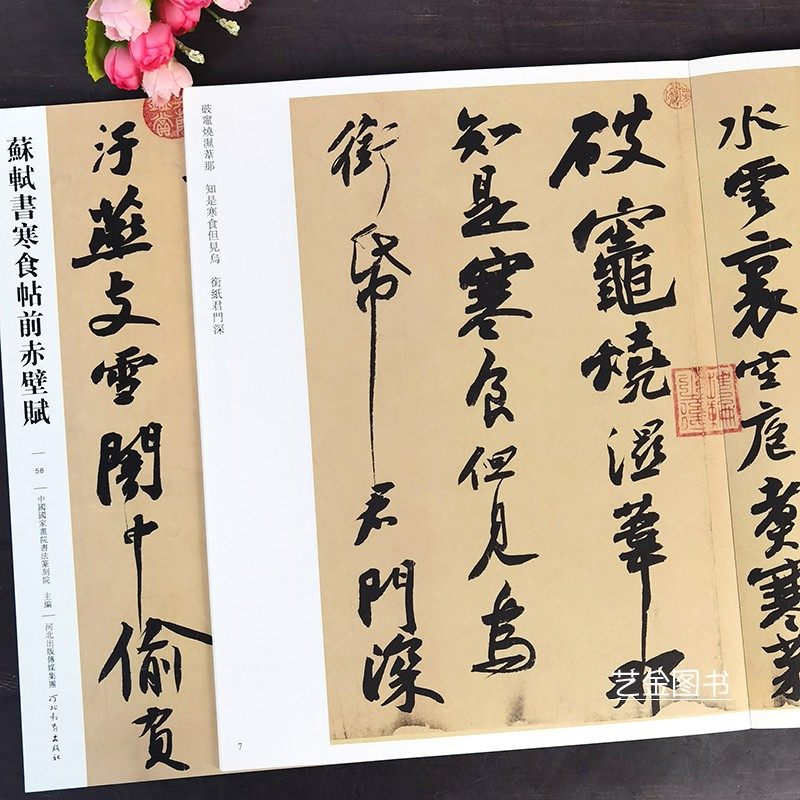 水雲裏空庖煮寒菜
破竈燒濕葦那
知是寒食但見烏
銜帋君門深
破竈燒濕葦那　知是寒食但見烏　銜紙君門深
7
汙燕支雪闇中偷負
蘇軾書寒食帖前赤壁賦
58
中國國家畫院書法篆刻院　主編
河北出版傳媒集團　河北教育出版社
艺金图书